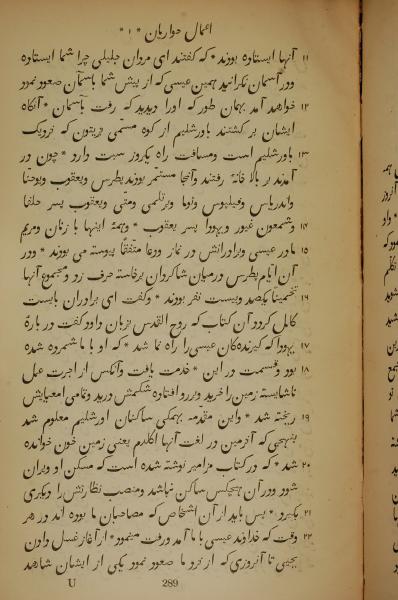 اعمال حواریان * ۱ *
۱۱ آنها ایستاده بودند * که گفتند ای مردان جلیلی چرا شما ایستاده
در آسمان نگرانید همین عیسی که از پیش شما باسمآن صعود نمود
۱۲ خواهد آمد بهمان طور که اورا دیدید که رفت باسمان * آنگاه
ایشان بر کشتند باورشلیم از کوه مسمّی بزیتون که نزدیک
۱۳ باورشلیم است ومسافت راه یکروز سبت دارد * چون در
آمدند بر بالا خانهٔ رفتند وآنجا مستمّر بودند پطرس ویعقوب ویوحنّا
واندریاس وفیلپوس وتوما وبرتلمی ومتی ویعقوب پسر حلفا
۱۴ وشمعون غیور ویهودا پسر یعقوب * وهمهٔ اینها با زنان ومریم
۱۵ مادر عیسی وبرادرانش در نماز ودعا متّفقًا پیوسته می بودند * ودر
آن ایّام پطرس درمیان شاکردان برخاسته حرف زد ومجموع آنها
۱۶ تخمینًا یکصد وبیست نفر بودند * وگفت ای برادران بایست
کامل کردد آن کتاب که روح القدس بزبان داود گفت در بارهٔ
۱۷ یهودا که کیرندهکان عیسی را راه نما شد * که او با ما شمرده شده
۱۸ بود وقسمت در این * خدمت یافت وآنکس از اجرت عمل
ناشایسته زمین را خرید وبررو افتاده شکمش درید وتمامی امعایش
۱۹ ریخته شد * واین مقدّمه بهمکی ساکنان اورشلیم معلوم شد
بنهجی که آنزمین در لغت آنها اکلدم یعنی زمین خون خوانده
۲۰ شد * که در کتاب مزامیر نوشته شده است که مسکن او ویران
شود ودر آن هیچکس ساکن نباشد ومنصب نظارتش را دیکری
۲۱ بکیرد * پس باید از آن اشخاص که مصاحبان ما بوده اند در هر
۲۲ وقت که خداوند عیسی با ما آمد ورفت مینمود * از آغاز غسل دادن
یحیی تا آنروزی که از نزد ما صعود نمود یکی از ایشان شاهد
U 289